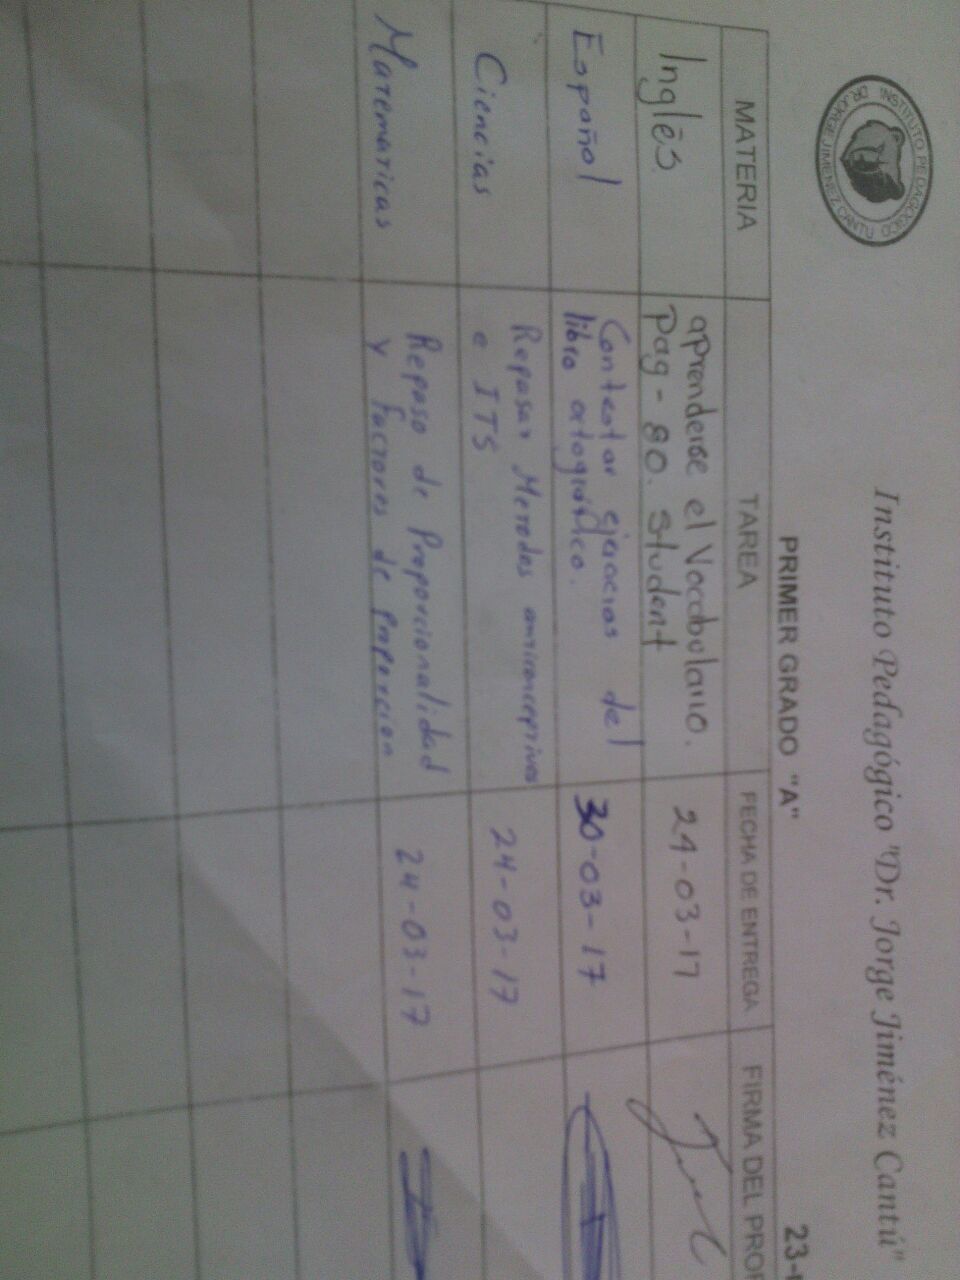 INSTITUTO PEDAGOGICO
DR. JORGE JIMENEZ CANTU
Instituto Pedagógico "Dr. Jorge Jiménez Cantú"
PRIMER GRADO "A"
23-
MATERIA TAREA FECHA DE ENTREGA FIRMA DEL PROF
Inglés aprenderse el Vocabulario. 24-03-17
pag - 80. Student
Español Contestar ejercicios del 30-03-17
libro ortográfico.
Ciencias Repasar Metodos anticonceptivos 24-03-17
e ITS
Matematicas Repaso de Proporcionalidad 24-03-17
y factores de proporcion